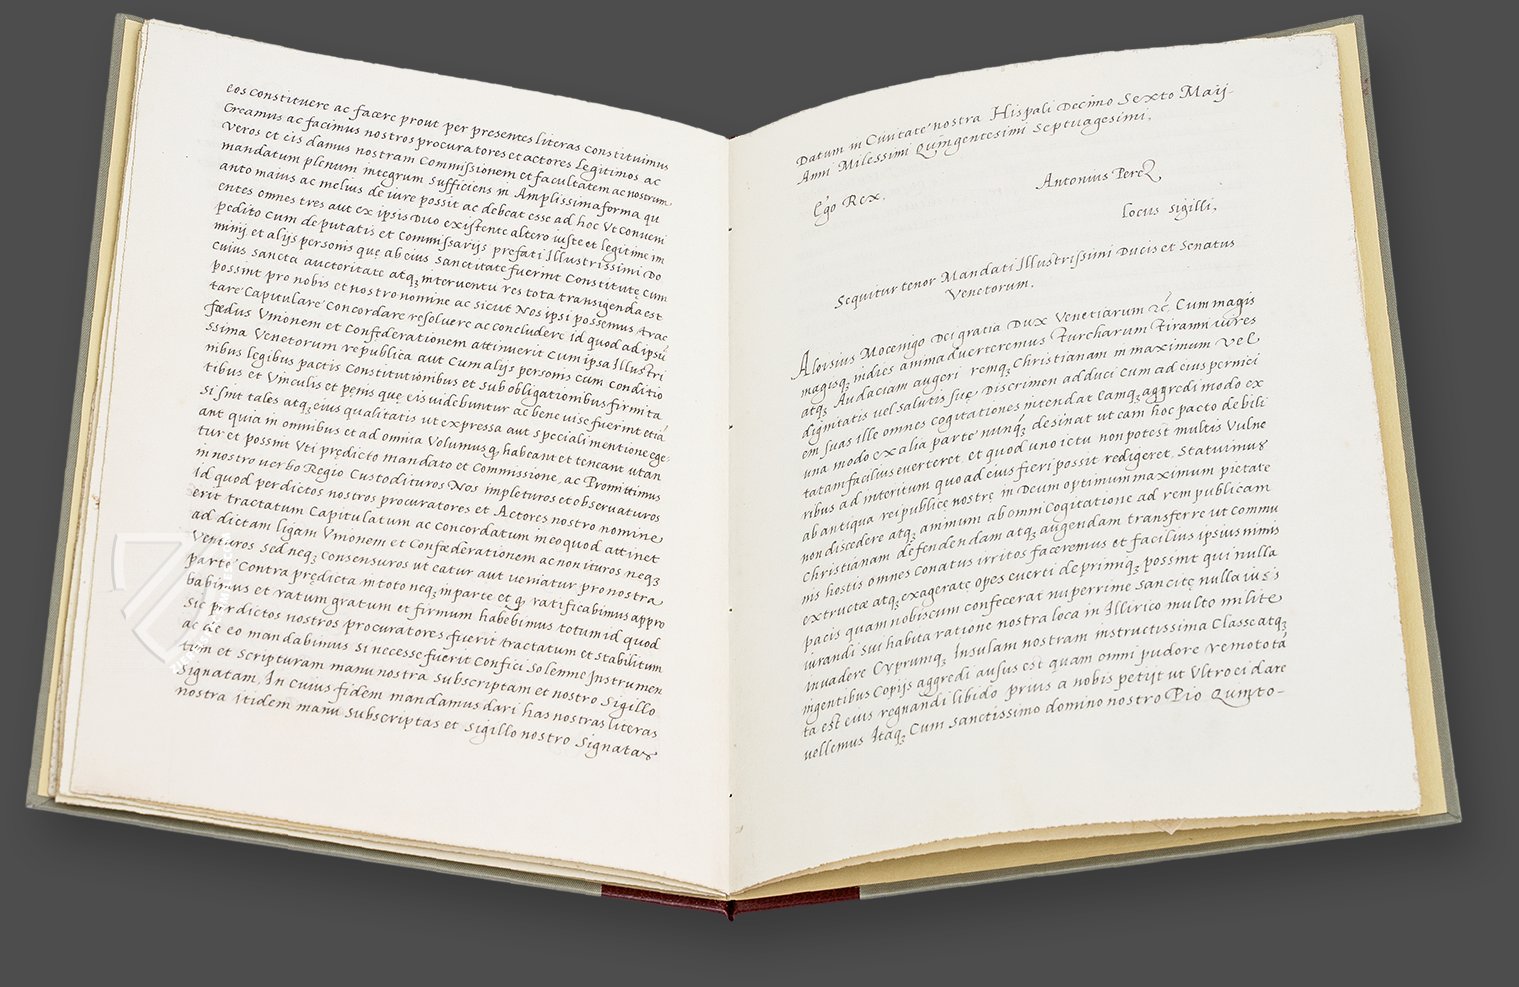 eos constituere ac facere prout per presentes literas constituimus
Creamus ac facimus nostros procuratores et actores legitimos ac
Veros et eis damus nostram Commissionem et facultatem ac nostrum
mandatum plenum integrum sufficiens in Amplissima forma qu
anto maius ac melius de iure possit ac debeat esse ad hoc Ut conueni
entes omnes tres aut ex ipsis Duo existente altero iuste et legitime im
pedito Cum deputatis et Commissarijs prefati Illustrissimi Do
minij et alijs personis que ab eius Sanctitate fuerint Constitute Cum
cuius sancta auctoritate atq; interuentu res tota transigenda est
possint pro nobis et nostro nomine ac sicut Nos ipsi possemus trac
tare Capitulare Concordare resoluere ac concludere id quod ad ipsū
fœdus Vnionem et Confœderationem attinuerit Cum ipsa Illustri
ssima Venetorum republica aut Cum alijs personis cum Conditio
nibus legibus pactis Constitutionibus et sub obligationibus firmita
tibus et Vinculis et penis que eis uidebuntur ac bene uise fuerint etiā
Si sint tales atq; eius qualitatis ut expressa aut speciali mentione ege
ant quia in omnibus et ad omnia Volumus q habeant et teneant utan
tur et possint Vti predicto mandato et Commissione, ac Promittimus
in nostro uerbo Regio Custodituros Nos impleturos et obseruaturos
Id quod per dictos nostros procuratores et Actores nostro nomine
erit tractatum Capitulatum ac concordatum in eo quod attinet
ad dictam ligam Vnionem et Confœderationem ac non ituros neq;
Venturos sed neq; consensuros ut eatur aut ueniatur pro nostra
parte Contra predicta in toto neq; in parte et q ratificabimus appro
babimus et ratum gratum et firmum habebimus totum id quod
Sic per dictos nostros procuratores fuerit tractatum et stabilitum
ac de eo mandabimus Si necesse fuerit Confici Solemne Instrumen
tum et Scripturam manu nostra Subscriptam et nostro Sigillo
Signatam. In cuius fidem mandamus dari has nostras literas
nostra itidem manu Subscriptas et Sigillo nostro Signatas
Datum in Ciuitate nostra Hispali Decimo Sexto Maij
Anni Milessimi Quingentesimi Septuagesimi.
Ego Rex. Antonius Perez
locus sigilli.
Sequitur tenor Mandati Illustrissimi Ducis et Senatus
Venetorum.
Aloisius Mocenigo Dei gratia Dux Venetiarum &c̄ Cum magis
magisq; indies animaduerteremus Turcharum Tiranni uires
atq; Audaciam augeri remq; Christianam in maximum Vel
dignitatis uel salutis sue Discrimen adduci cum ad eius pernici
em suas ille omnes cogitationes intendat eamq; aggredi modo ex
una modo ex alia parte nunq desinat ut eam hoc pacto debili
tatam facilius euerteret, et quod uno ictu non potest multis Vulne
ribus ad interitum quo ad eius fieri possit redigeret. Statuimus
ab antiqua reipublice nostre in Deum optimum maximum pietate
non discedere atq; animum ab omni Cogitatione ad rem publicam
Christianam defendendam atq; augendam transferre ut commu
nis hostis omnes Conatus irritos faceremus et facilius ipsius nimis
extructæ atq; exagerate opes euerti deprimiq; possint qui nulla
pacis quam nobiscum confecerat nuperrime Sancite nulla iuris
iurandi sui habita ratione nostra loca in Illirico multo milite
inuadere Cyprumq; Insulam nostram instructissima Classe atq;
ingentibus Copijs aggredi ausus est quam omni pudore remoto tā
ta est eius regnandi libido prius a nobis petijt ut Vltro ei dare
uellemus Itaq; Cum sanctissimo domino nostro Pio Quinto